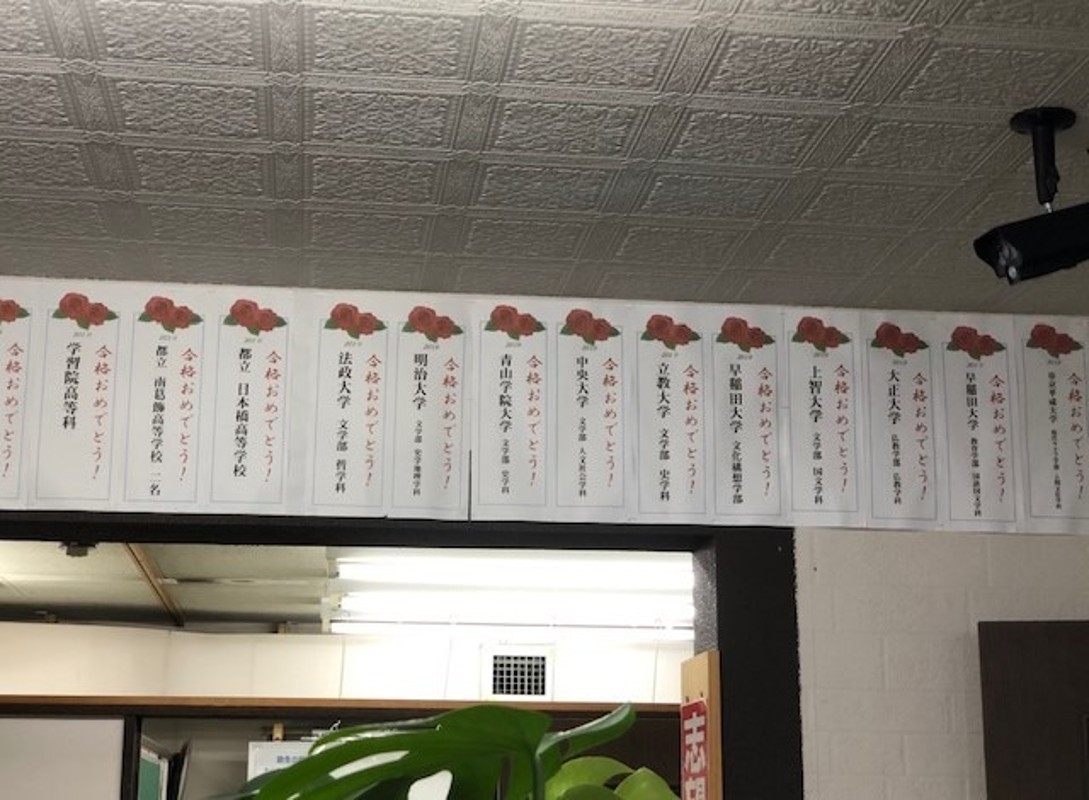 合格おめでとう！
合格おめでとう！
学習院高等科
合格おめでとう！
都立 南葛飾高等学校 二名
合格おめでとう！
都立 日本橋高等学校
合格おめでとう！
法政大学 文学部 哲学科
合格おめでとう！
明治大学 文学部 史学地理学科
合格おめでとう！
青山学院大学 文学部 史学科
合格おめでとう！
中央大学 文学部 人文社会学科
合格おめでとう！
立教大学 文学部 史学科
合格おめでとう！
早稲田大学 文化構想学部
合格おめでとう！
上智大学 文学部 国文学科
合格おめでとう！
大正大学 仏教学部 仏教学科
合格おめでとう！
早稲田大学 教育学部 国語国文学科
合格おめでとう！
帝京平成大学
志望